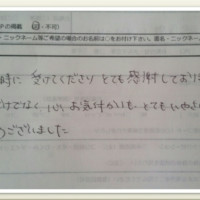 の掲載 可・不可)
ニックネーム等ご希望の場合のお名前は○をお付け下さい。署名・ニックネー
時に 受けてくださり とても感謝しており
けでなく 心の お気付かいも とても
うございました